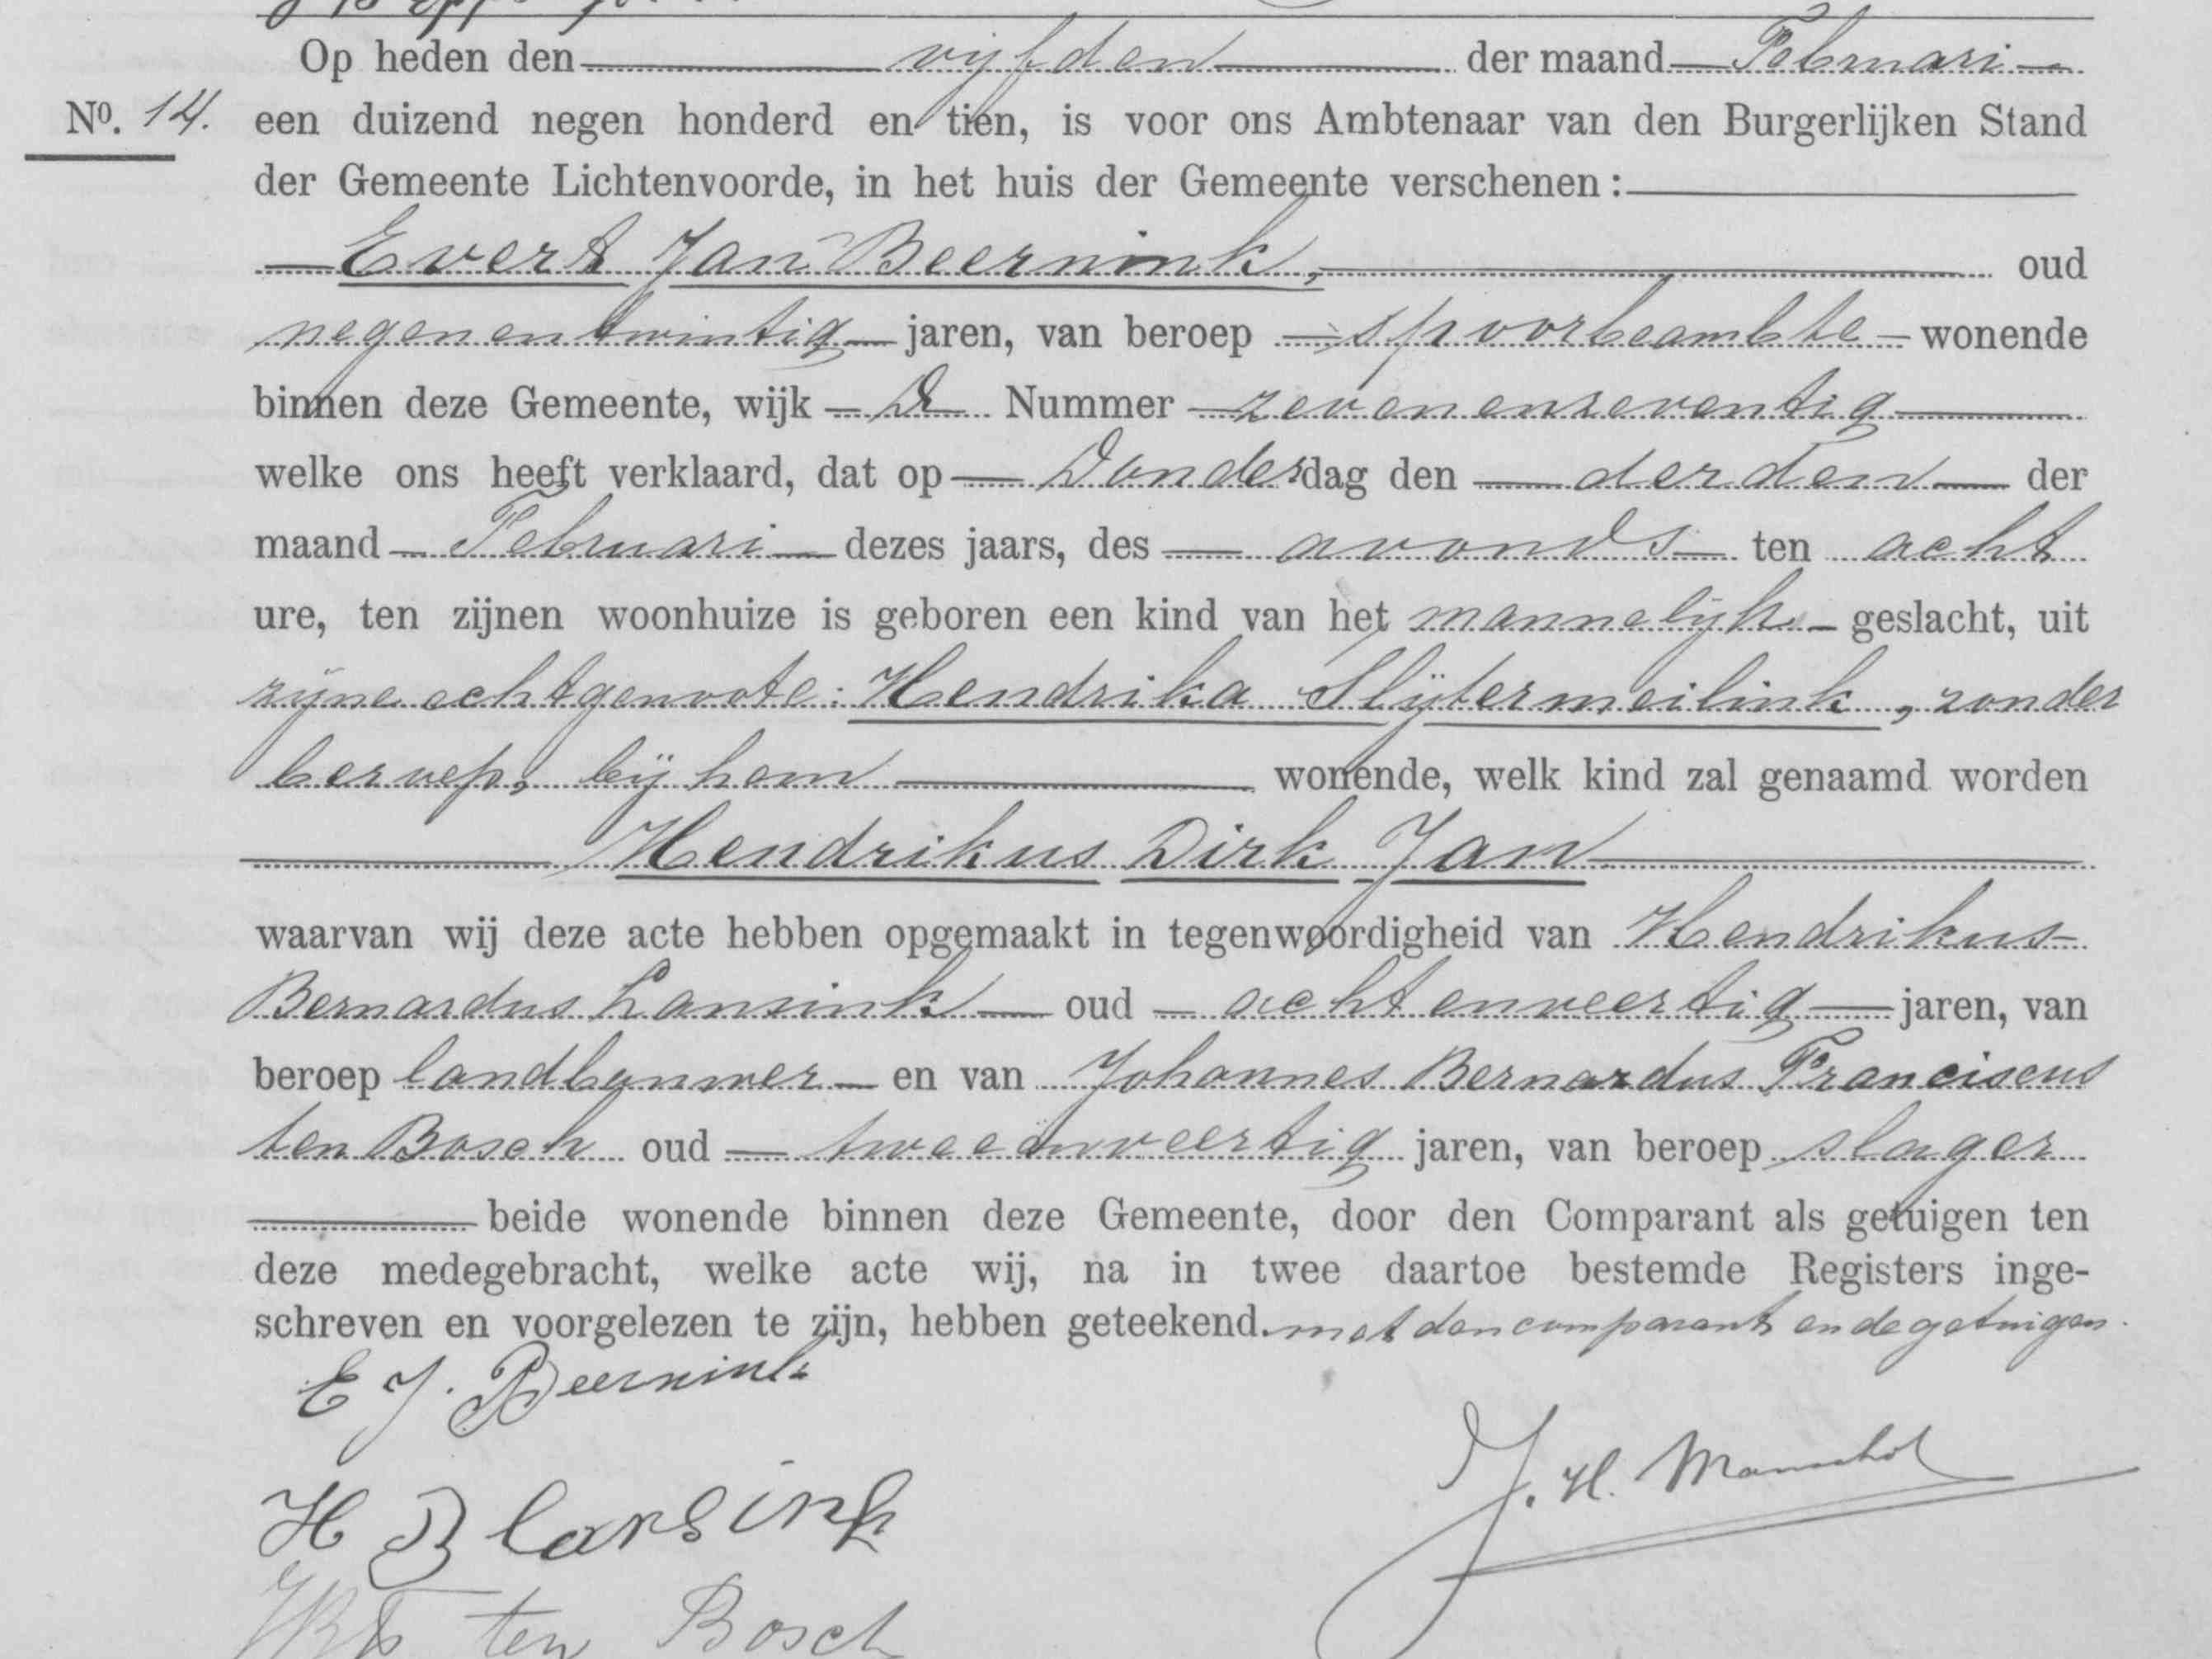 Op heden den vijfden der maand Februari
No. 14. een duizend negen honderd en tien, is voor ons Ambtenaar van den Burgerlijken Stand
der Gemeente Lichtenvoorde, in het huis der Gemeente verschenen:
Evert Jan Beernink, oud
negenentwintig jaren, van beroep spoorbeambte wonende
binnen deze Gemeente, wijk D Nummer zevenenzeventig
welke ons heeft verklaard, dat op Donderdag den derden der
maand Februari dezes jaars, des avonds ten acht
ure, ten zijnen woonhuize is geboren een kind van het mannelijk geslacht, uit
zijne echtgenoote: Hendrika Slijtermeilink, zonder
beroep, bij hem wonende, welk kind zal genaamd worden
Hendrikus Dirk Jan
waarvan wij deze acte hebben opgemaakt in tegenwoordigheid van Hendrikus
Bernardus Lansink oud achtenveertig jaren, van
beroep landbouwer en van Johannes Bernardus Franciscus
ten Bosch oud tweeënveertig jaren, van beroep slager
beide wonende binnen deze Gemeente, door den Comparant als getuigen ten
deze medegebracht, welke acte wij, na in twee daartoe bestemde Registers inge-
schreven en voorgelezen te zijn, hebben geteekend. met den comparant en de getuigen.
E J. Beernink
J. H. Manschot
H B Lansink
ten Bosch